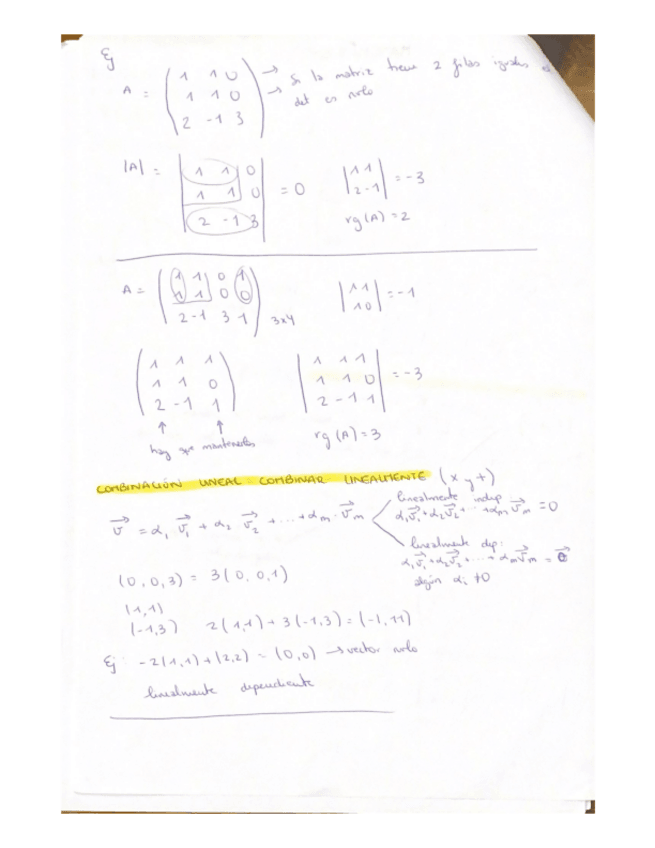 Ej
A = ( 1 1 0 → Si la matriz tiene 2 filas iguales
1 1 0 → det es nulo
2 -1 3 )
|A| = | 1 1 0
1 1 0 = 0 | 1 1
2 -1 | = -3
2 -1 3 | rg(A) = 2
A = ( 1 1 0 1
1 1 0 0
2 -1 3 1 ) 3x4 | 1 1
1 0 | = -1
( 1 1 1
1 1 0
2 -1 1 ) | 1 1 1
1 1 0
2 -1 1 | = -3
↑ ↑
hay que mantenerlos rg(A) = 3
COMBINACIÓN LINEAL: COMBINAR LINEALMENTE (x y +)
v⃗ = α₁ v⃗₁ + α₂ v⃗₂ + ... + αm · v⃗m
linealmente indep
α₁v⃗₁ + α₂v⃗₂ + ... + αm v⃗m = 0
linealmente dep:
α₁v⃗₁ + α₂v⃗₂ + ... + αm v⃗m = 0⃗
algún αᵢ ≠ 0
(0,0,3) = 3(0,0,1)
(1,1)
(-1,3) 2(1,1) + 3(-1,3) = (-1,11)
Ej: -2(1,1) + (2,2) = (0,0) → vector nulo
linealmente dependiente